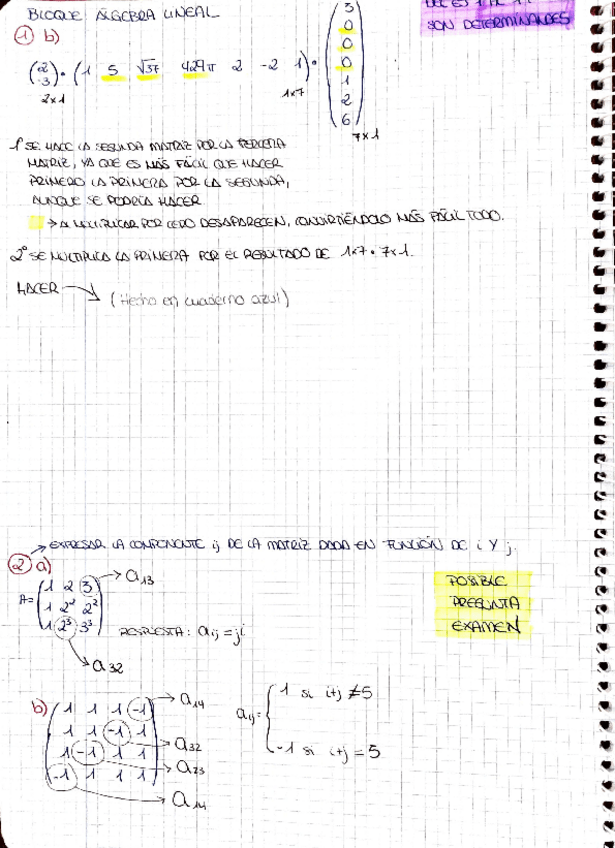 BLOQUE ÁLGEBRA LINEAL
SON DETERMINANTES
1 b)
(2 3) · (1 5 √37 429π 2 -2 1) · (3 0 0 0 1 2 6)
2x1 1x7 7x1
1º SE HACE LA SEGUNDA MATRIZ POR LA TERCERA
MATRIZ, YA QUE ES MÁS FÁCIL QUE HACER
PRIMERO LA PRIMERA POR LA SEGUNDA,
AUNQUE SE PODRÍA HACER
→ A MULTIPLICAR POR CERO DESAPARECEN, CONVIRTIÉNDOLO MÁS FÁCIL TODO.
2º SE MULTIPLICA LA PRIMERA POR EL RESULTADO DE 1x7 · 7x1.
HACER → (Hecho en cuaderno azul)
→ EXPRESAR LA COMPONENTE ij DE LA MATRIZ DADA EN FUNCIÓN DE i Y j.
2 a)
A = (1 2 3
1 2² 2²
1 2³ 3³)
→ a13
a32
RESPUESTA: aij = jⁱ
POSIBLE
PREGUNTA
EXAMEN
b) (1 1 1 -1
1 1 -1 1
1 -1 1 1
-1 1 1 1)
→ a14
→ a32
→ a23
→ a14
aij = { 1 si i+j ≠ 5
-1 si i+j = 5